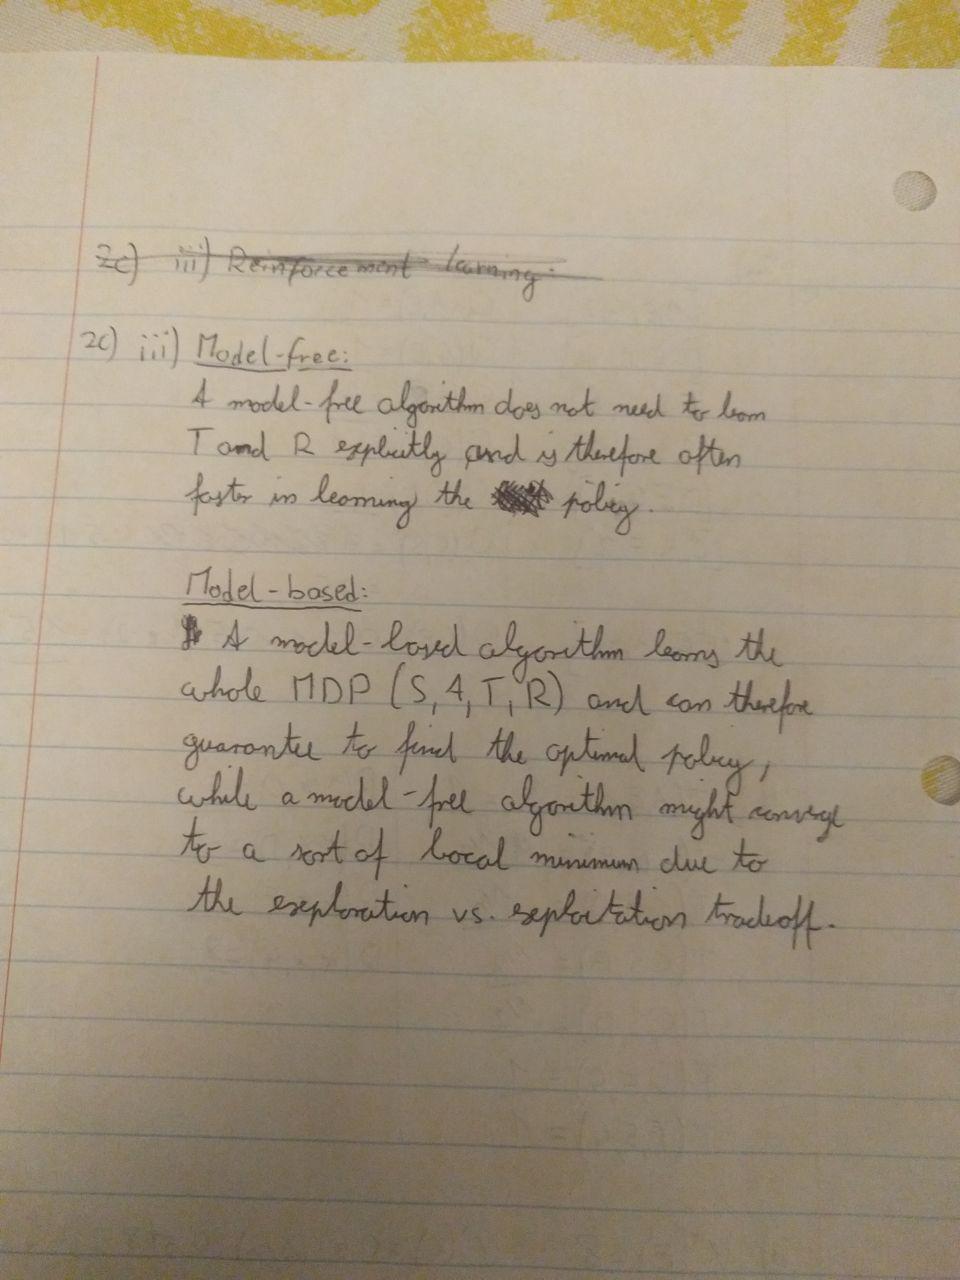 2c) iii) Reinforcement learning:
2c) iii) Model-free:
A model-free algorithm does not need to learn
T and R explicitly and is therefore often
faster in learning the policy.
Model-based:
A model-based algorithm learns the
whole MDP (S, A, T, R) and can therefore
guarantee to find the optimal policy,
while a model-free algorithm might converge
to a sort of local minimum due to
the exploration vs. exploitation tradeoff.